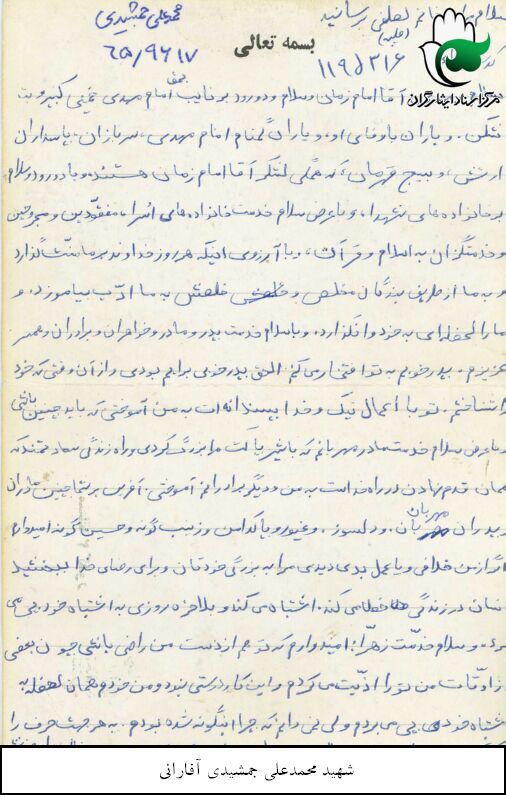 سلام
برسانید
محمدعلی جمشیدی
۶۵/۹۶۱۷
بسمه تعالی
مرکز اسناد ایثارگران
آقا امام زمان و سلام و درود بر نایب بحق امام مهدی خمینی کبیر و بت
شکن. و یاران باوفای او، و یاران گمنام امام مهدی، سربازان، پاسداران
ارتش، و بسیج قهرمان، که همگی لشکر آقا امام زمان هستند، و با درود و سلام
بر خانواده های شهدا، و با عرض سلام خدمت خانواده های اسرا، مفقودین و مجروحین
و خدمتگزان به اسلام و قرآن، و با آرزوی اینکه هر روز خداوند بر ما منت گذارد
و به ما از طریق بندگان مخلص و خلصش به ما ادب بیاموزد، و
ما را لحظه ای به خود وا نگذارد. و با سلام خدمت پدر و مادر و خواهران و برادران و همسر
عزیزم. پدر خوبم به تو افتخار می کنم الحق پدر خوبی برایم بودی و از آن وقتی که خود
را شناختم. تو با أعمال نیک و خدا پسندانه ات به من آموختی که باید چنین باشی
و با عرض سلام خدمت مادر مهربانم که با شیر پاکت مرا بزرگ کردی و راه زندگی سعادتمند که
همان قدم نهادن در راه خداست به من و دیگر برادرانم آموختی. آفرین بر شما چنین مادران
و پدران مهربان. و دلسوز. و غیور و پاکدامن و زینب گونه و حسین گونه امیدوارم
اگر از من خلافی و یا عمل بدی دیدی مرا به بزرگی خودتان و برای رضای خدا ببخشید
انسان در زندگی خطا می کند. اشتباه می کند و بلاخره روزی به اشتباه خود پی می
برد، و سلام خدمت زهرا: امیدوارم که تو هم از دست من راضی باشی چون بعضی
از اوقات من تو را اذیت می کردم و این کار درستی نبود و من خودم همان لحظه به
اشتباه خود پی می بردم ولی نمی دانم که چرا اینگونه شده بودم. به هر جهت حرف را
شهید محمدعلی جمشیدی آفارانی